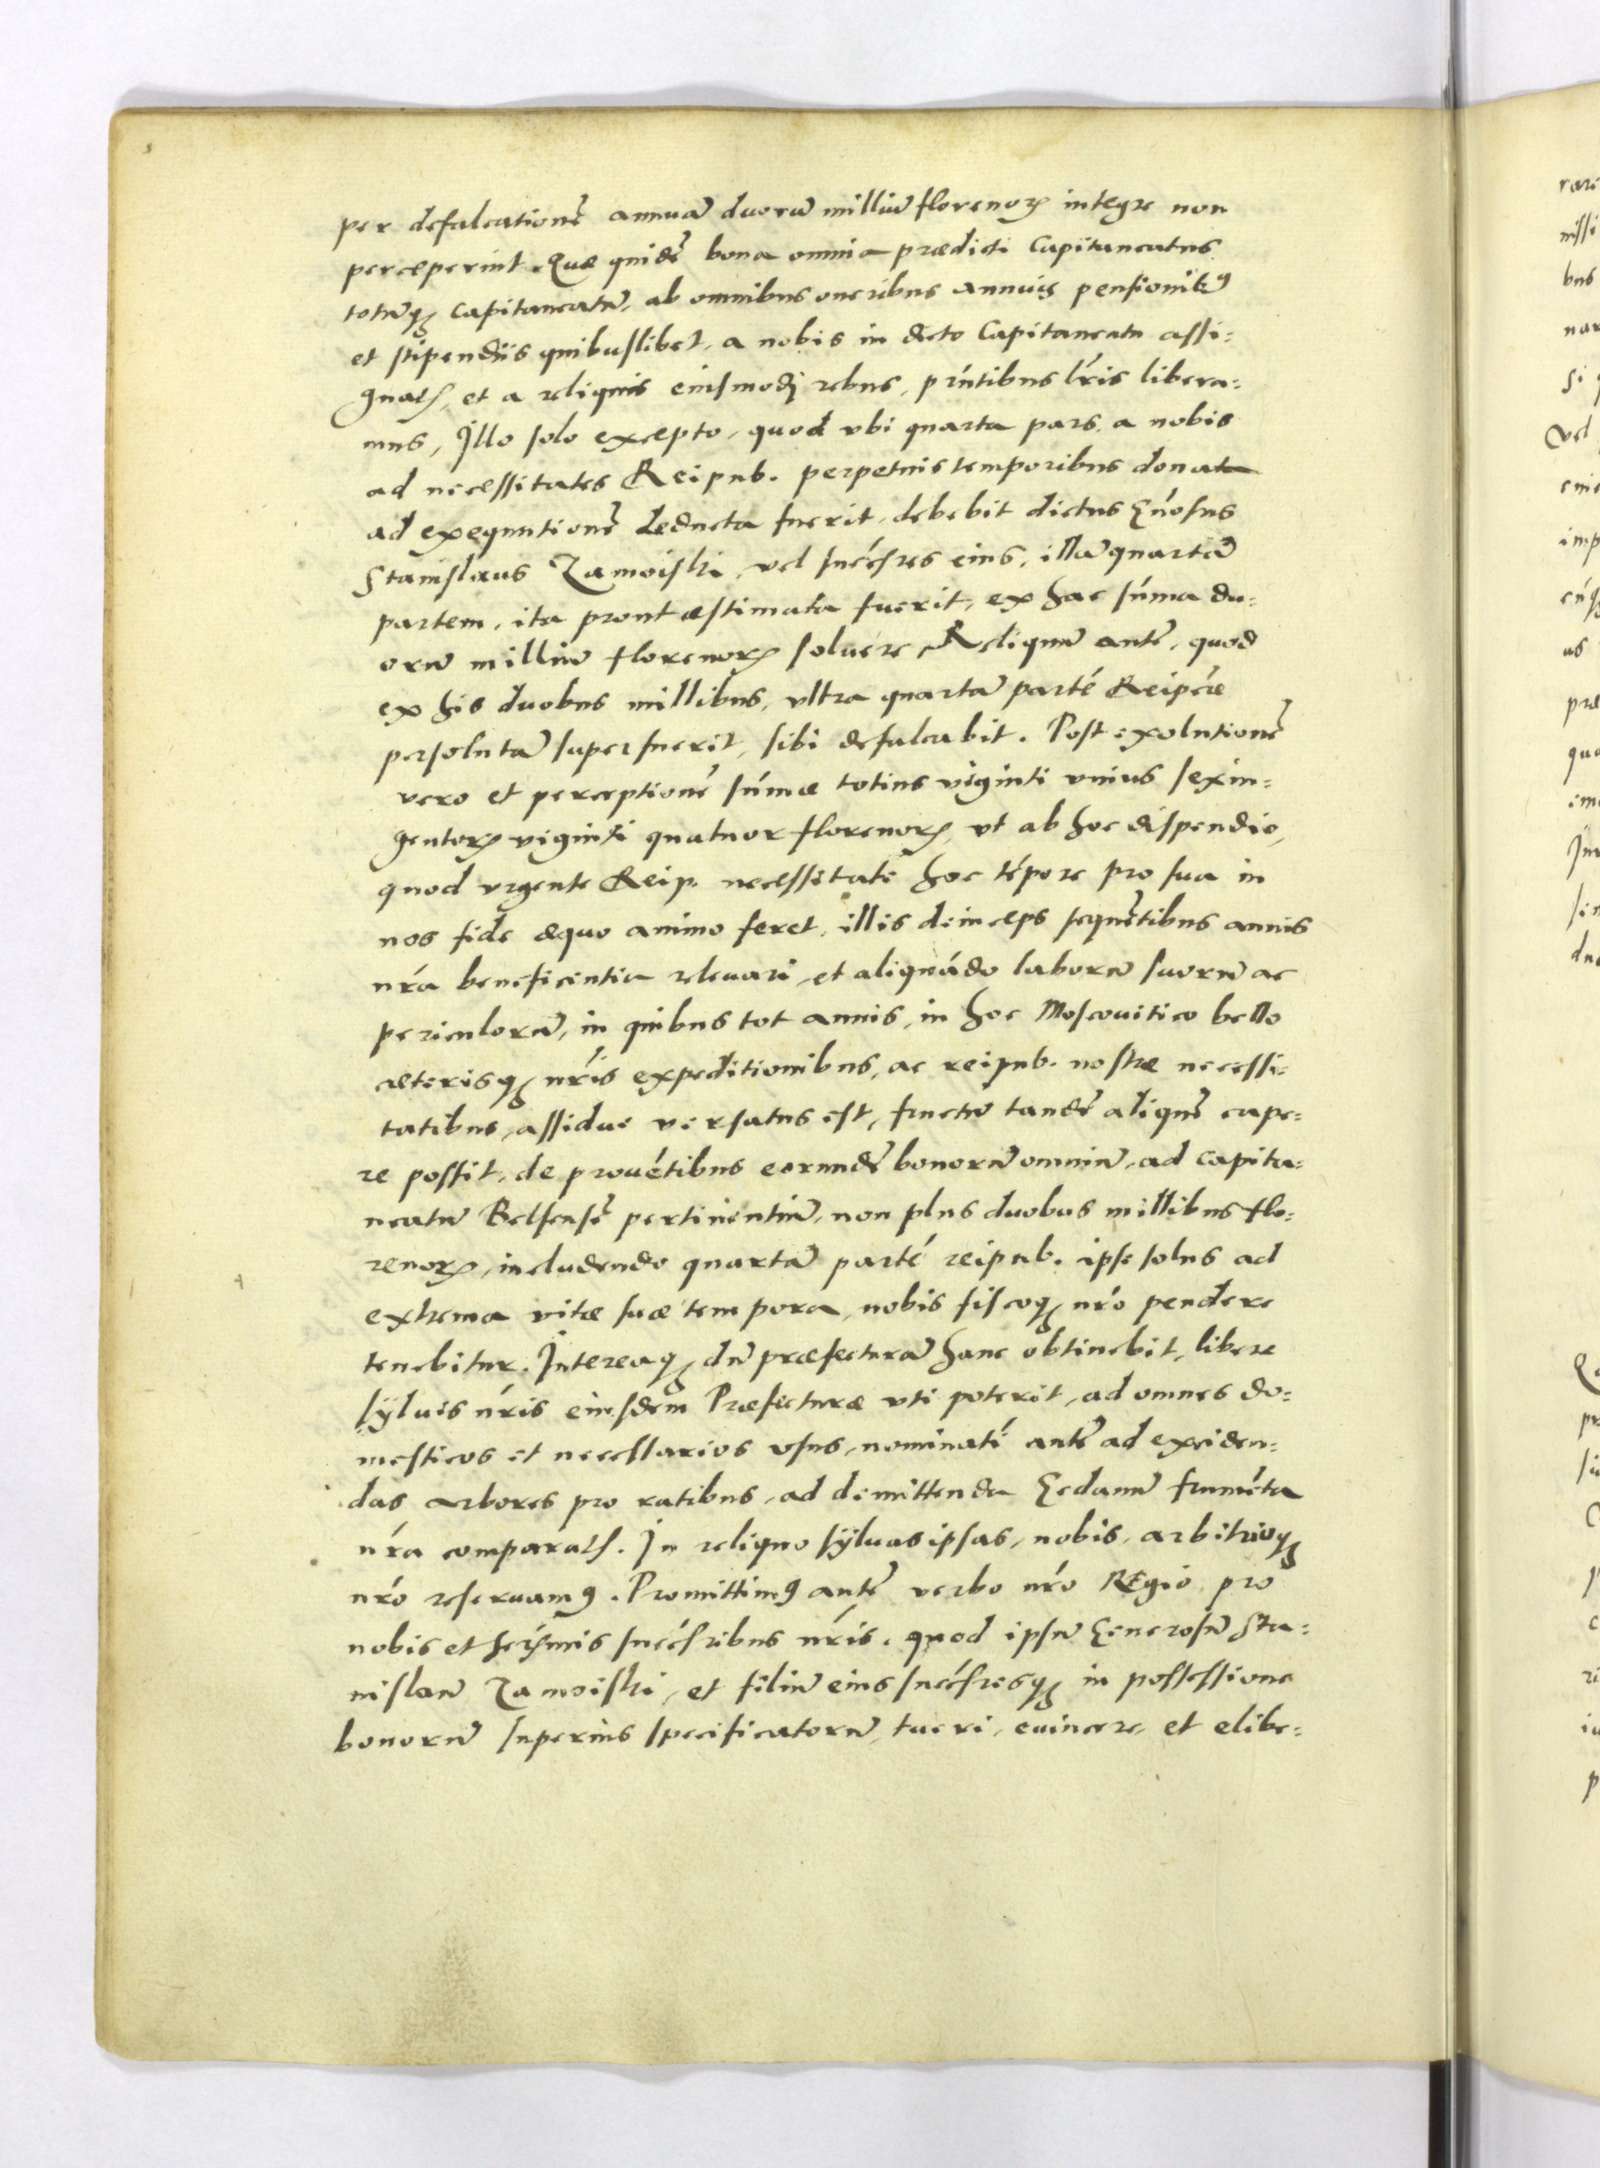 per defalcationẽ annuã duorũ milliũ florenoꝝ integre non
perceperint. Quæ quidẽ bona omnia prædicti Capitaneatus
totũqꝫ capitaneatũ, ab omnibus oneribus annuis pensionibꝰ
et stipendiis quibuslibet, a nobis in dicto Capitaneatu assi=
gnatis, et a reliquis eiusmodi rebus, pñtibus lr̃is libera=
mus, Illo solo excepto, quod vbi quarta pars a nobis
ad necessitates Reipub. perpetuis temporibus donata
ad exequutionẽ deducta fuerit, debebit dictus Gñosus
Stanislaus Zamoiski, vel succ̃sres eius, illã quartã
partem, ita prout æstimata fuerit, ex hac sum̃a du=
orũ milliũ florenoꝝ soluere, Reliquũ autẽ, quod
ex his duobus millibus, vltra quartã partẽ Reipc̃æ
persolutã superfuerit, sibi defalcabit. Post exolutionẽ
vero et perceptionẽ sum̃æ totius viginti vnius sexin=
gentoꝝ viginti quatuor florenoꝝ, vt ab hoc dispendio,
quod vrgente Reip. necessitate hoc tẽpore pro sua in
nos fide æquo animo feret, illis deinceps sequẽtibus annis
nr̃a beneficentia releuari, et aliquãdo laborũ suorũ ac
periculorũ, in quibus tot annis, in hoc Moscouitico bello
cæterisqꝫ nr̃is expeditionibus, ac reipub. nostræ necessi=
tatibus, assidue versatus est, fructũ tandẽ aliquẽ cape=
re possit, de prouẽtibus eorundẽ bonorũ omniũ, ad capita=
neatũ Belsensẽ pertinentiũ, non plus duobus millibus flo=
renoꝝ, includendo quartã partẽ reipub. ipse solus ad
extrema vitæ suæ tempora, nobis fiscoqꝫ nr̃o pendere
tenebitur. Intereaqꝫ dũ præfecturã hanc obtinebit, libere
syluis nr̃is eiusdem Præfecturæ vti poterit, ad omnes do=
mesticos et necessarios vsus, nominatĩ autẽ ad exciden=
das arbores pro ratibus, ad demittenda Gedanũ frumẽta
nr̃a comparatis. In reliquo syluas ipsas, nobis, arbitrioqꝫ
nr̃o reseruamꝰ. Promittimꝰ autẽ verbo nr̃o Regio pro
nobis et ser̃mis succ̃sribus nr̃is, quod ipsũ Generosũ Sta=
nislaũ Zamoiski, et filiũ eius succ̃sresqꝫ in possessione
bonorũ superius specificatorũ, tueri, euincere, et elibe=